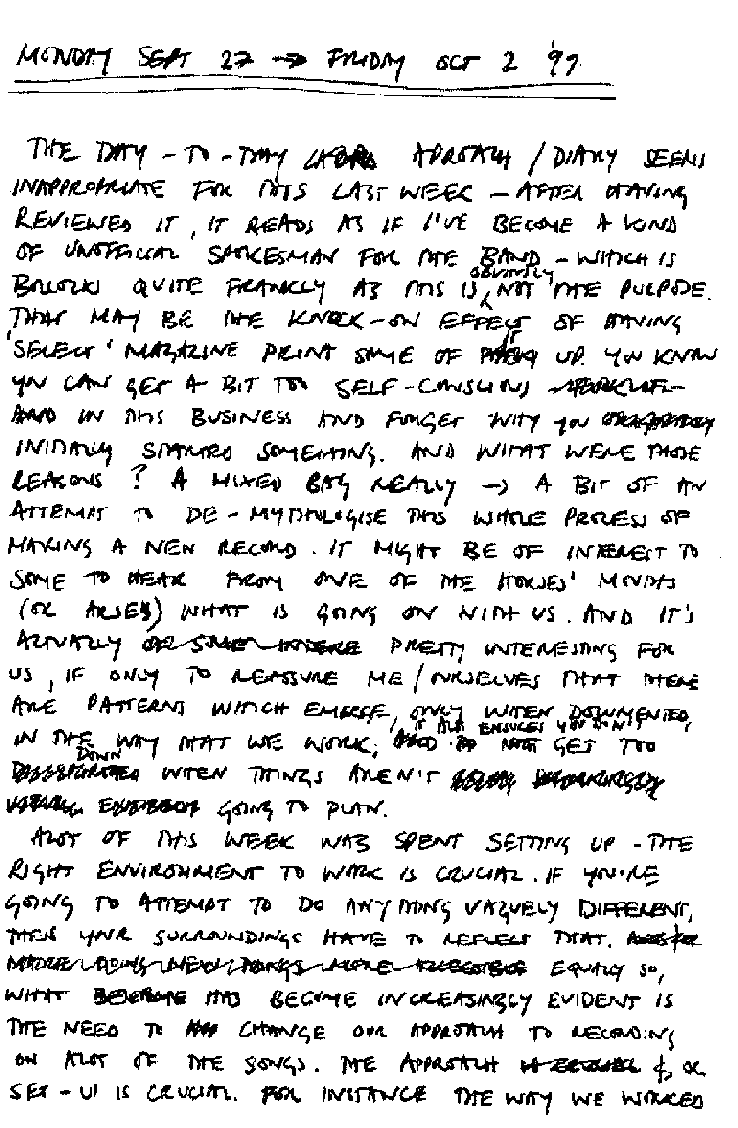 MONDAY SEPT 27 → FRIDAY OCT 2 '97
THE DAY-TO-DAY APROACH / DIARY SEEMS
INAPPROPRIATE FOR THIS LAST WEEK - AFTER HAVING
REVIEWED IT, IT READS AS IF I'VE BECOME A KIND
OF UNOFFICIAL SPOKESMAN FOR THE BAND - WHICH IS
BOLLOCKS QUITE FRANKLY AS THIS IS OBVIOUSLY NOT THE PURPOSE.
THAT MAY BE THE KNOCK-ON EFFECT OF HAVING
'SELECT' MAGAZINE PRINT SOME OF IT UP. YOU KNOW
YOU CAN GET A BIT TOO SELF-CONSCIOUS
AND IN THIS BUSINESS AND FORGET WHY YOU
INITIALLY STARTED SOMETHING. AND WHAT WERE THOSE
REASONS? A MIXED BAG REALLY → A BIT OF AN
ATTEMPT TO DE-MYTHOLOGISE THIS WHOLE PROCESS OF
MAKING A NEW RECORD. IT MIGHT BE OF INTEREST TO
SOME TO HEAR FROM ONE OF THE HORSES' MOUTHS
(OR ARSES) WHAT IS GOING ON WITH US. AND IT'S
ACTUALLY PRETTY INTERESTING FOR
US, IF ONLY TO REASSURE ME/OURSELVES THAT THERE
ARE PATTERNS WHICH EMERGE, ONLY WHEN DOCUMENTED,
IN THE WAY THAT WE WORK, IT ALSO ENSURES YOU DON'T GET TOO
DOWN WHEN THINGS AREN'T
GOING TO PLAN.
ALOT OF THIS WEEK WAS SPENT SETTING UP - THE
RIGHT ENVIRONMENT TO WORK IS CRUCIAL. IF YOU'RE
GOING TO ATTEMPT TO DO ANYTHING VAGUELY DIFFERENT,
THEN YOUR SURROUNDINGS HAVE TO REFLECT THAT.
EQUALLY SO,
WHAT HAS BECOME INCREASINGLY EVIDENT IS
THE NEED TO CHANGE OUR APPROACH TO RECORDING
ON ALOT OF THE SONGS. THE APPROACH &, OR
SET-UP IS CRUCIAL. FOR INSTANCE THE WAY WE WORKED